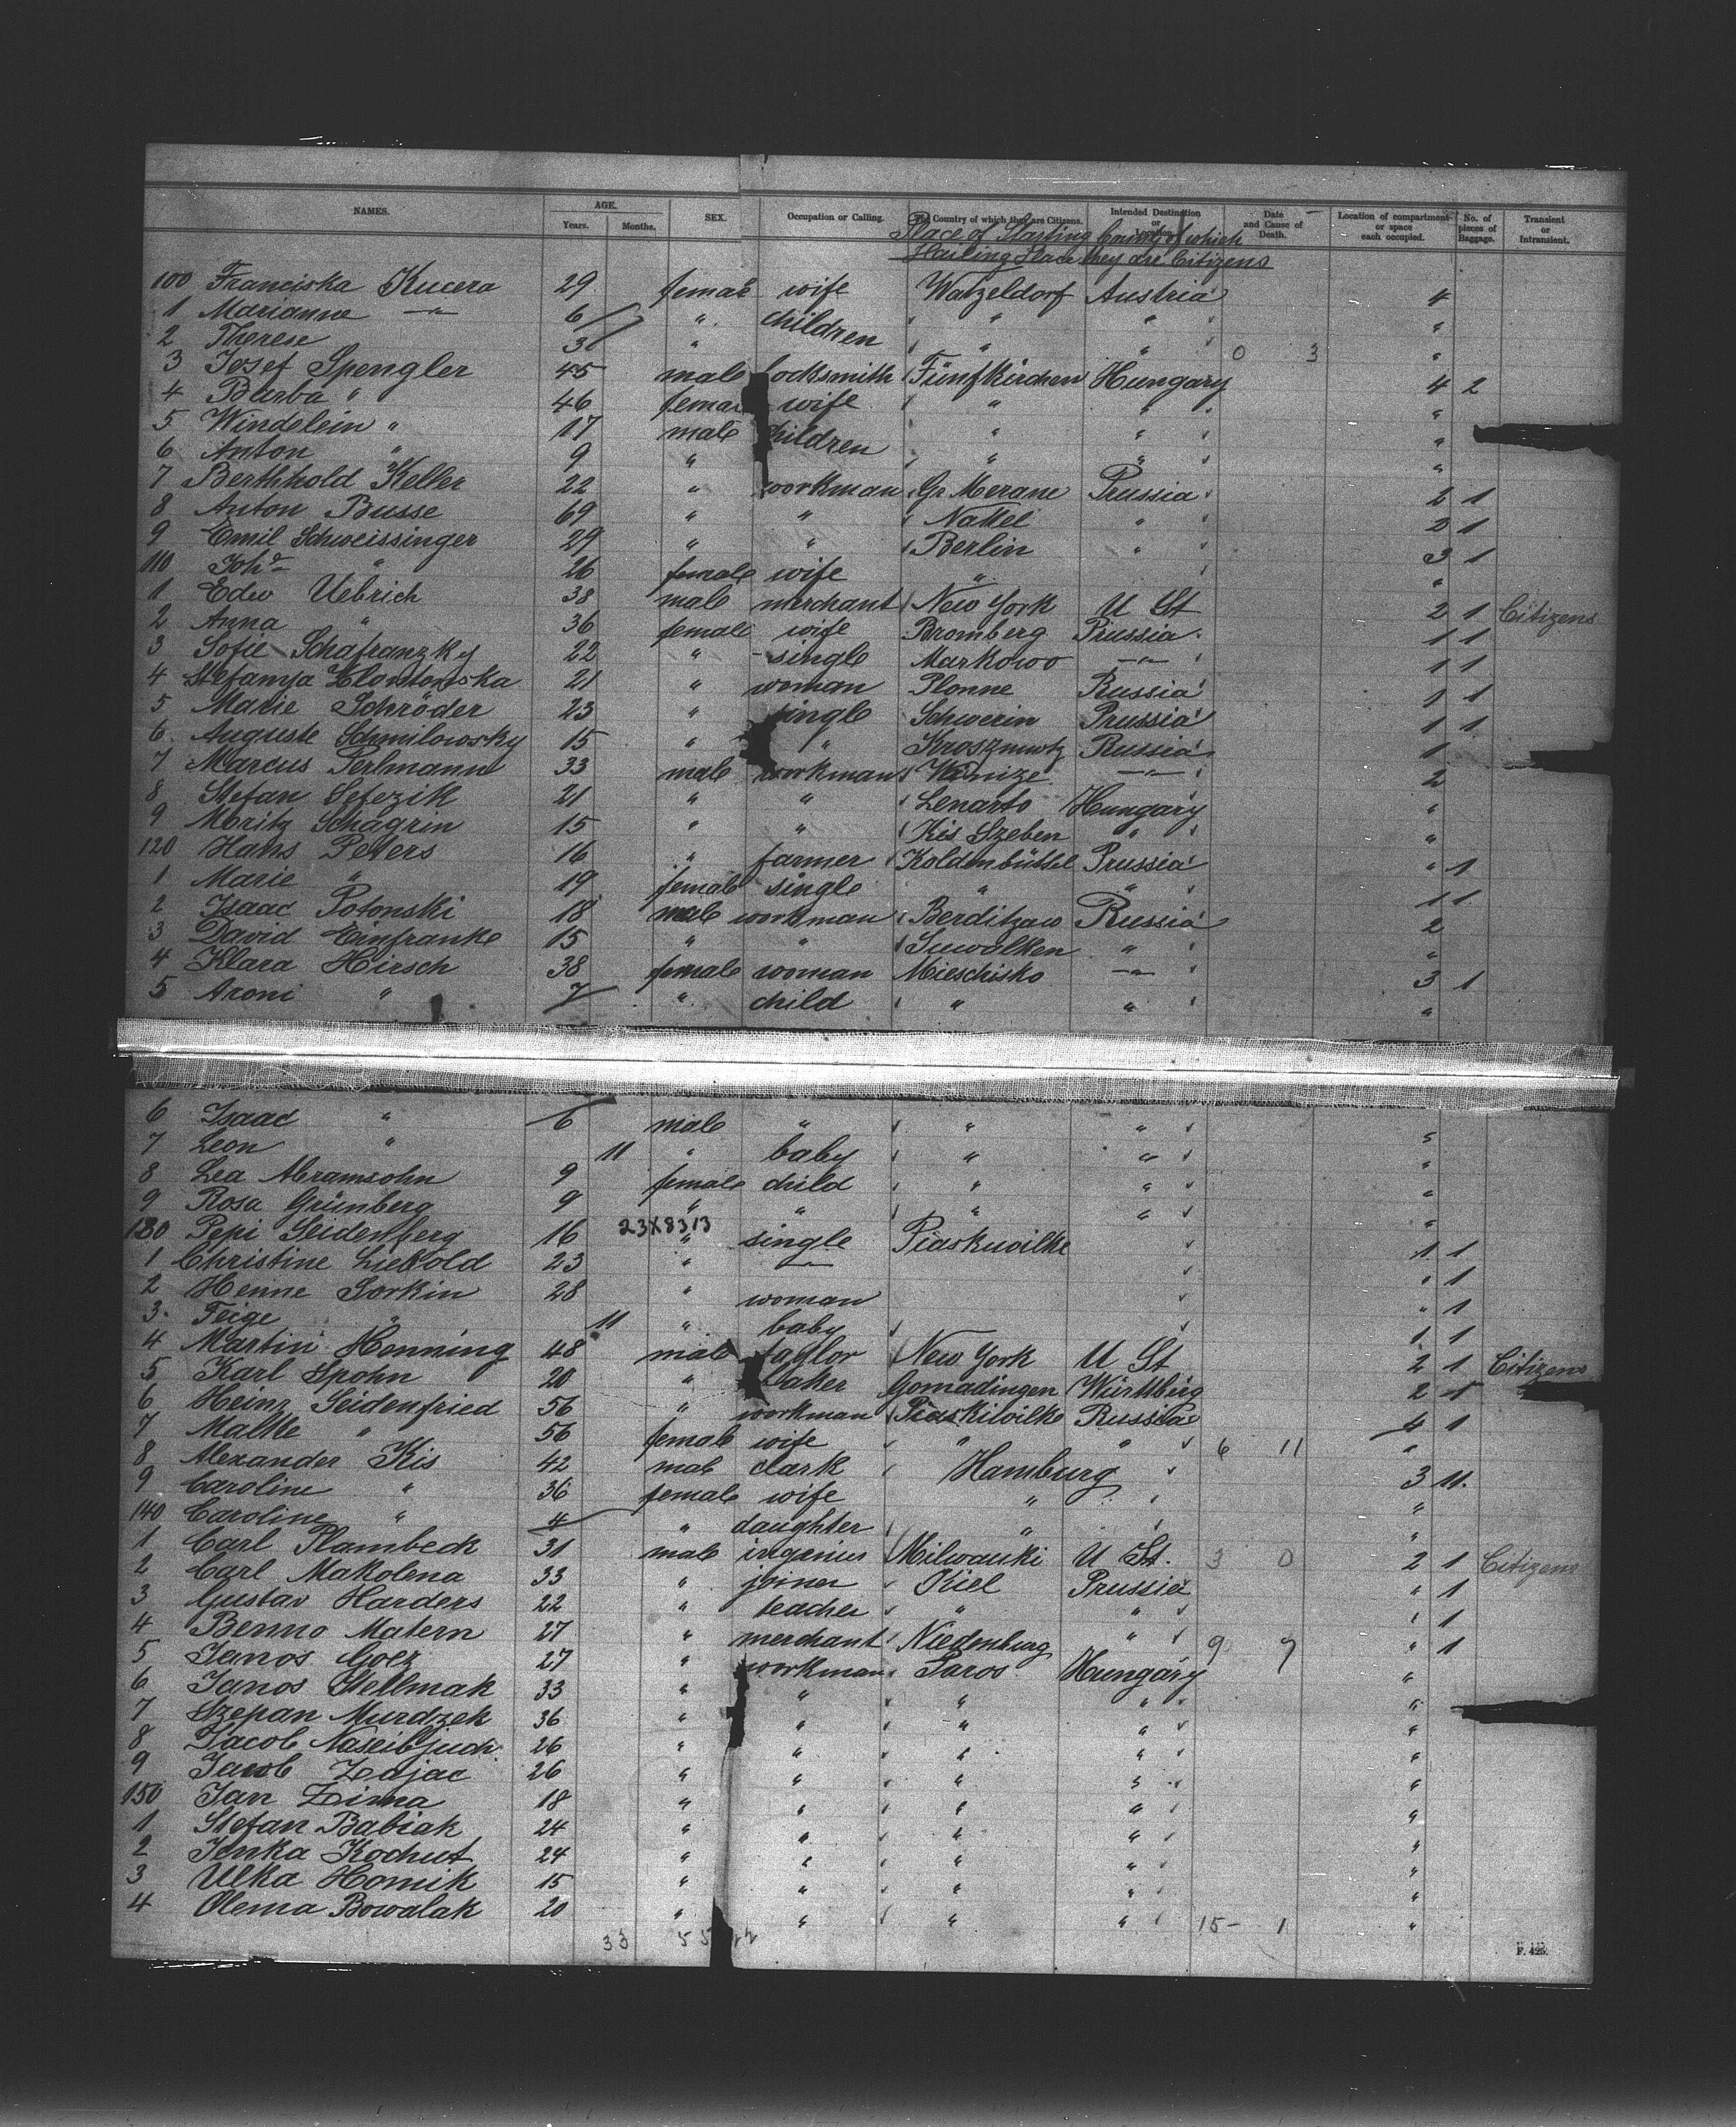 NAMES. AGE. Years. Months. SEX. Occupation or Calling. The Country of which they are Citizens. Intended Destination or Location. Date and Cause of Death. Location of compartment or space each occupied. No. of pieces of Baggage. Transient or Intransient.
Place of Starting County of which
Hailing Place they are Citizens
100 Franciska Kucera 29 female wife Watzeldorf Austria 4
1 Marianne —"— 6 " children " " "
2 Therese 3 " " " 0 3 "
3 Josef Spengler 45 male locksmith Fünfkirchen Hungary 4 2
4 Barba " 46 female wife " " "
5 Windelein " 17 male children " " "
6 Anton " 9 " " " "
7 Berthhold Keller 22 " workman Gr Merane Prussia 2 1
8 Anton Busse 69 " " Nakel " 2 1
9 Emil Schweissinger 29 " " Berlin " 3 1
110 Joh " 26 female wife " "
1 Edw Uebrich 38 male merchant New York U St 2 1 Citizens
2 Anna " 36 female wife Bromberg Prussia 1 1
3 Sofie Schafranzky 22 " single Markowo —"— 1 1
4 Stefanja 21 " woman Plonne Russia 1 1
5 Marie Schröder 23 " single Schwerin Prussia 1 1
6 Auguste Schmilowsky 15 " " Russia 1
7 Marcus Perlmann 33 male workman —"— 2
8 Stefan Sefezik 21 " " Lenarto Hungary "
9 Moritz Schagrin 15 " " Kis Szeben " "
120 Hans Peters 16 " farmer Koldenbüttel Prussia " 1
1 Marie " 19 female single " " 1 1
2 Isaac Potonski 18 male workman Berditzaw Russia 2
3 David Einfranke 15 " " Suwalken " "
4 Klara Hirsch 38 female woman Mieschisko —"— 3 1
5 Aroni " 7 " child " " "
6 Isaac " 6 male " " " "
7 Leon " 11 " baby " " "
8 Lea Abramsohn 9 female child " " "
9 Rosa Grünberg 9 " " " " "
130 Pepi Seidenberg 16 23X8313 " single Piaskuvilke 1 1
1 Christine Liebold 23 " —"— " 1
2 Henne Sorkin 28 " woman " 1
3 Feige " 11 " baby 1 1
4 Martin Henning 48 male taylor New York U St 2 1 Citizens
5 Karl Spohn 20 " baker Gomadingen Württbérg 2 1
6 Heinr Seidenfried 56 " workman Piaskiwilke Russia 4 1
7 Malke " 56 female wife " " 6 11 "
8 Alexander Kis 42 male clark Hamburg 3 11.
9 Caroline " 36 female wife " "
140 Caroline " 4 " daughter " "
1 Carl Plambeck 31 male ingenius Milwauki U St. 3 0 2 1 Citizens
2 Carl Makolena 33 " joiner Kiel Prussia " 1
3 Gustav Harders 22 " teacher " " 1
4 Benno Matern 27 " merchant Niedenburg " 9 7 " 1
5 Janos Goez 27 " workman Saros Hungary "
6 Janos Stellmak 33 " " " " "
7 Szepan Murdzek 36 " " " " "
8 Jacob 26 " " " " "
9 Jacob Zajac 26 " " " " "
150 Jan Zima 18 " " " " "
1 Stefan Babiak 24 " " " " "
2 Jenka Kochut 24 " " " " "
3 Ulka Homik 15 " " " " "
4 Olema Bowalak 20 " " " " 15 - 1 "
33 55
F. 425.